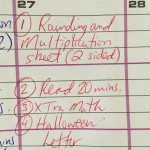 27
28
① Rounding and
Multiplication
sheet (2 sided)
② Read 20 mins.
③ XTra Math
④ Halloween
Letter